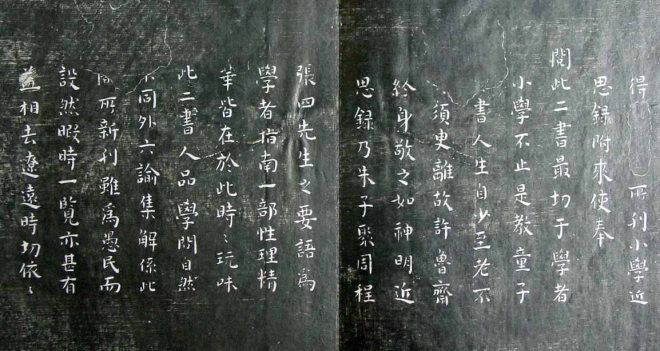 得 所刊小學近
思錄附來使奉
閱此二書最切于學者
小學不止是教童子
書人生自少至老不
須臾離故許魯齋
終身敬之如神明近
思錄乃朱子聚周程
張四先生之要語為
學者指南一部性理精
華皆在於此時〻玩味
此二書人品學問自然
不同外六諭集解係此
所新刊雖為愚民而
設然暇時一覧亦甚有
益相去遼遠時切依〻